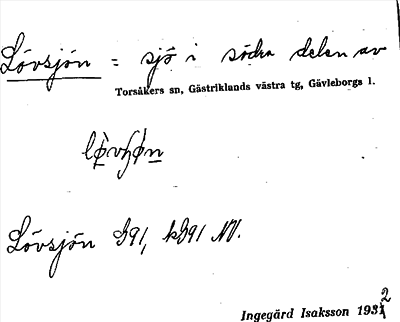 Lövsjön = sjö i södra delen av
Torsåkers sn, Gästriklands västra tg, Gävleborgs l.
Lövsjön G91, kG91 NV.
Ingegärd Isaksson 1932